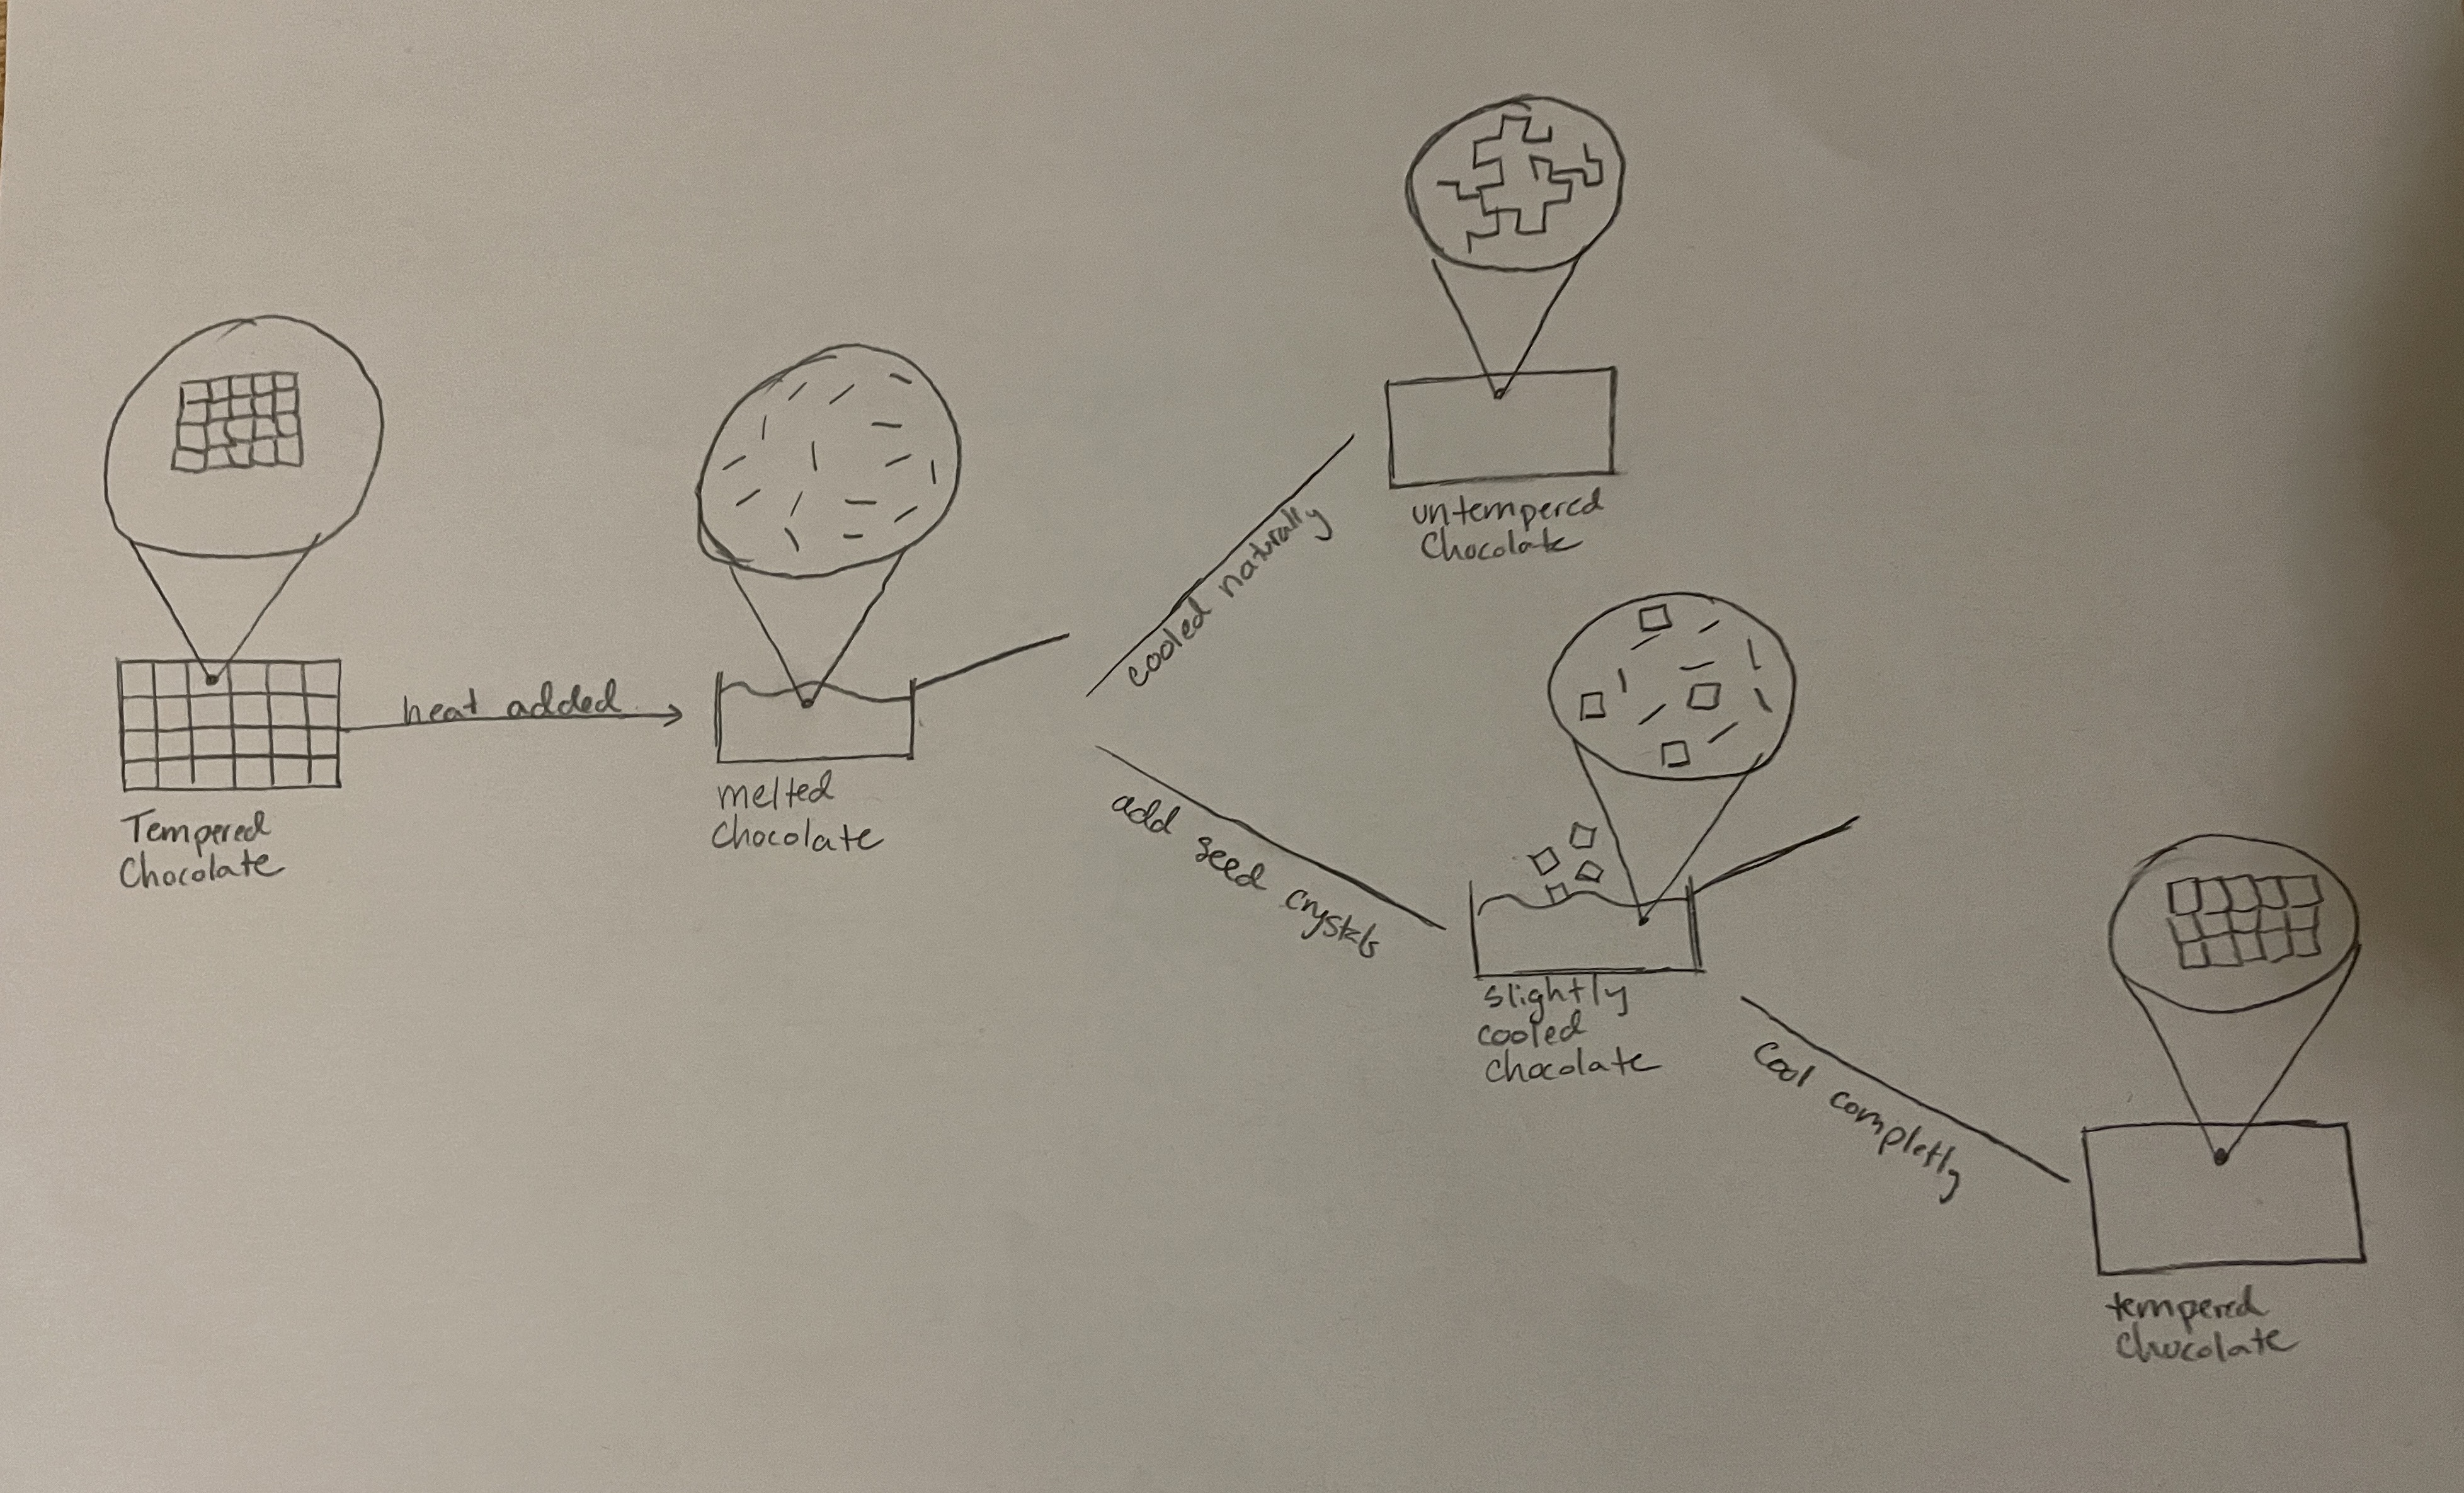 Tempered
Chocolate
heat added
melted
chocolate
cooled naturally
untempered
Chocolate
add seed crystals
slightly
cooled
chocolate
cool completly
tempered
Chocolate